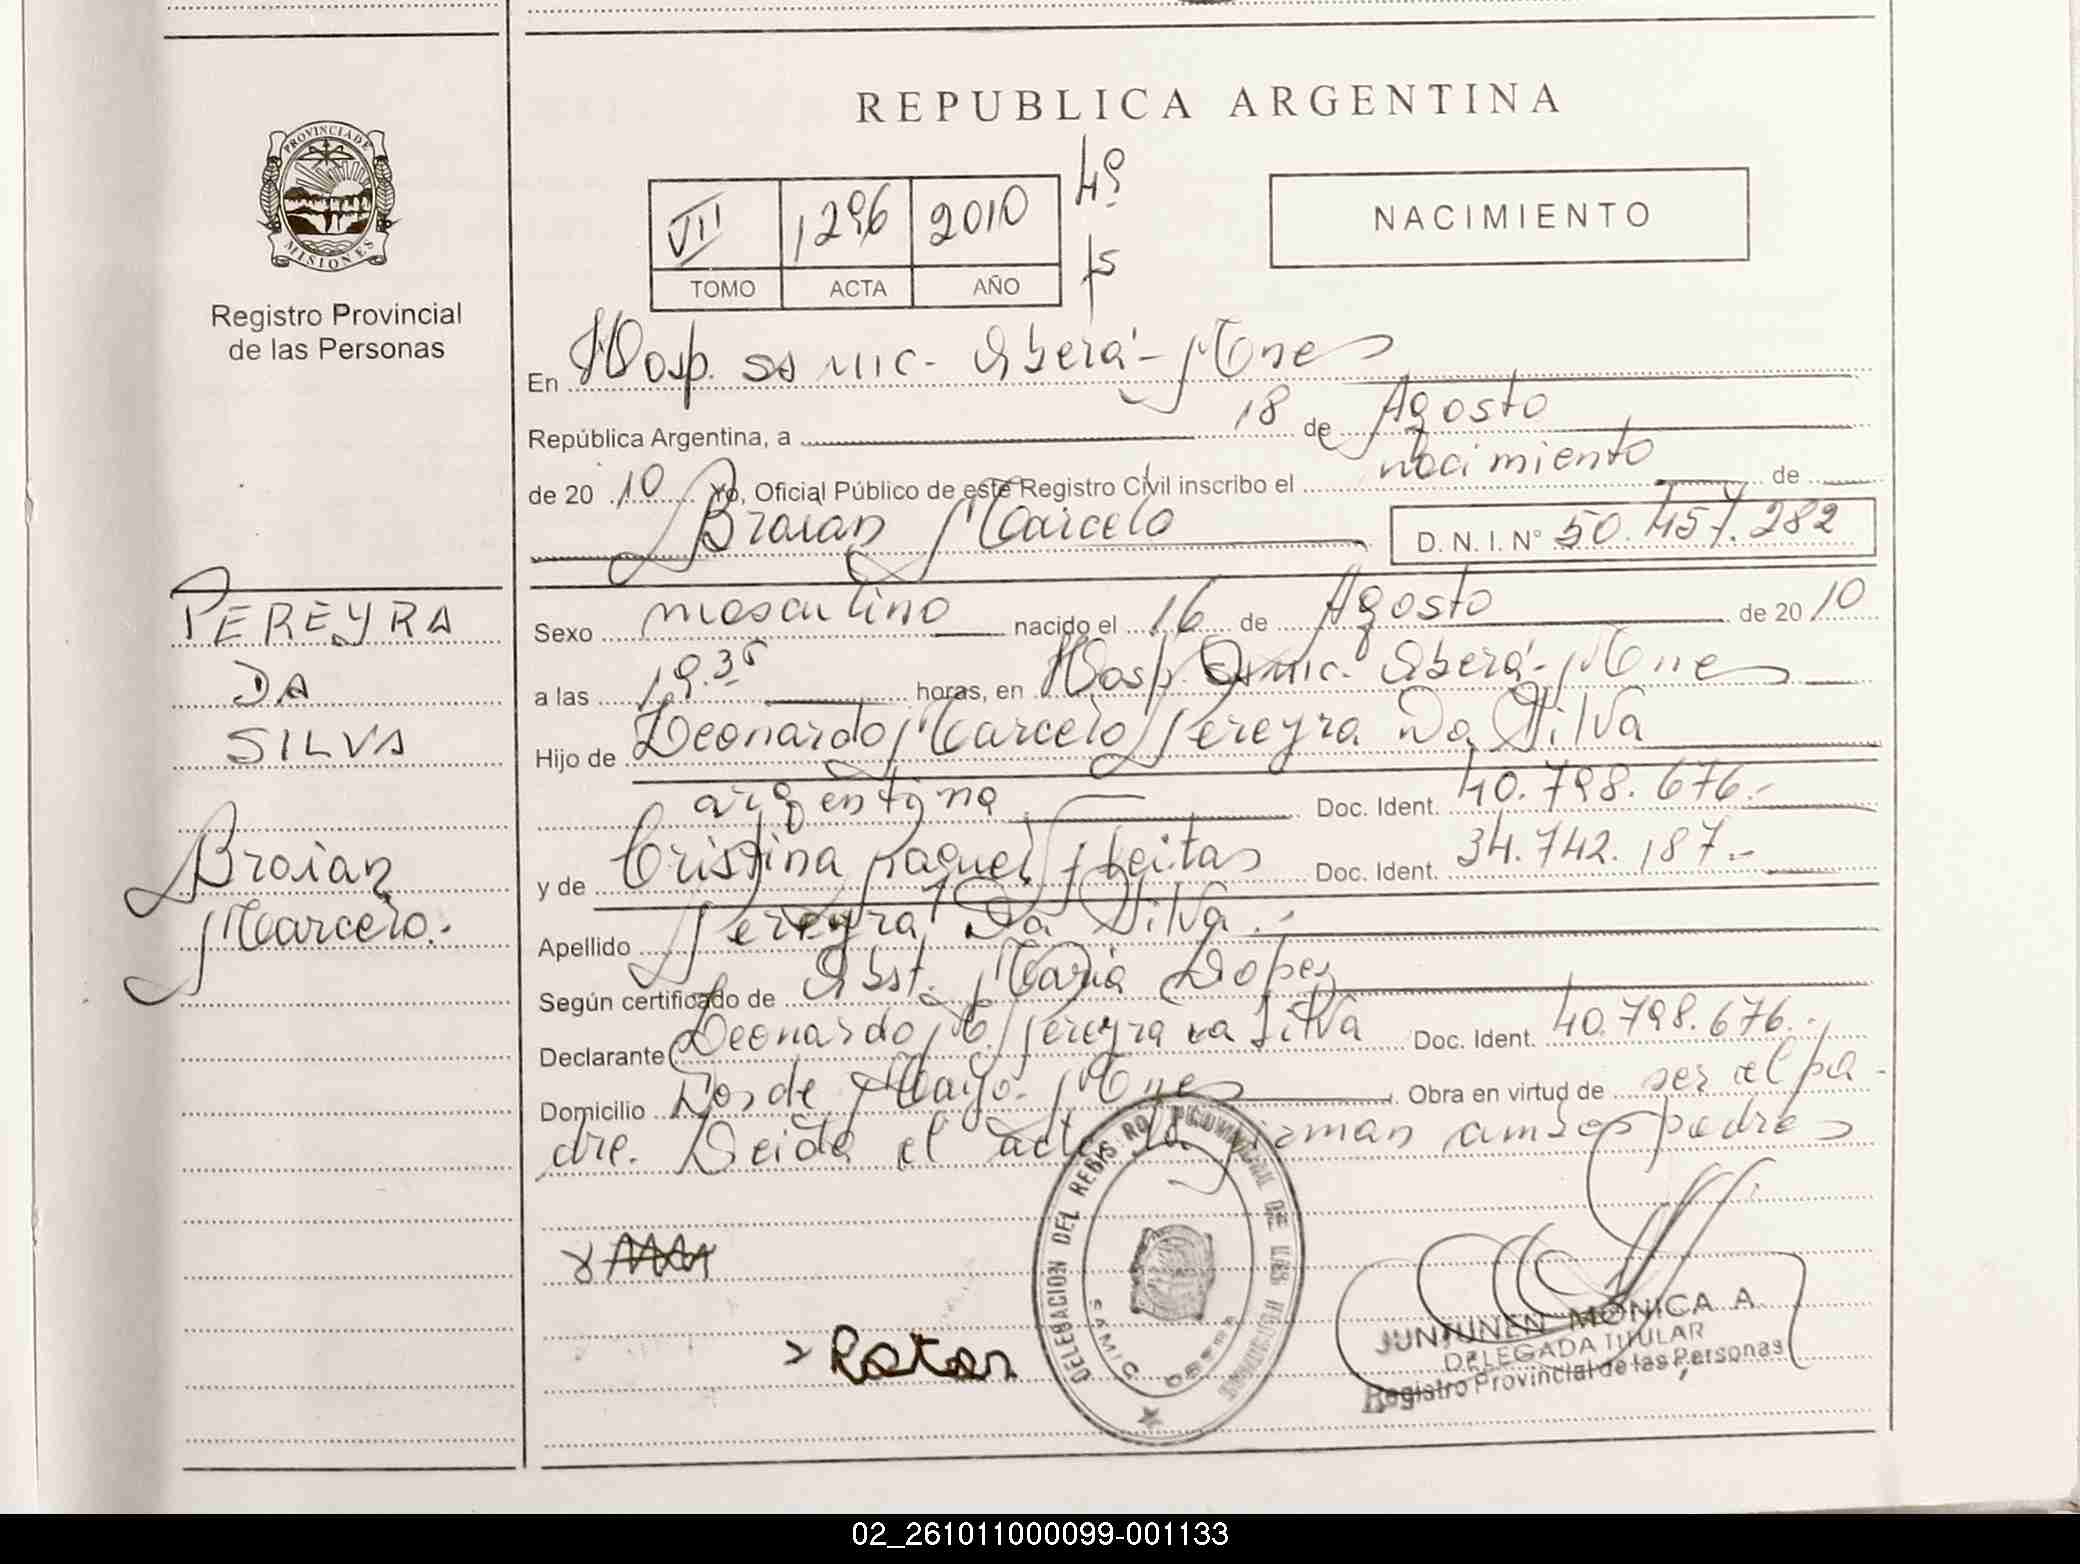 REPUBLICA ARGENTINA
PROVINCIA DE
MISIONES
Registro Provincial
de las Personas
VIII 1296 2010 4º
TOMO ACTA AÑO
NACIMIENTO
En Hosp. SAMIC. Oberá - Mnes
República Argentina, a 18 de Agosto
de 20 10 Yo, Oficial Público de este Registro Civil inscribo el nacimiento de
Braian Marcelo D. N. I. Nº 50.457.282
PEREYRA
DA
SILVA
Braian
Marcelo.
Sexo masculino nacido el 16 de Agosto de 20 10
a las 19.35 horas, en Hosp. SAMIC. Oberá - Mnes
Hijo de Leonardo Marcelo Pereyra Da Silva
argentina Doc. Ident. 40.798.676.-
y de Cristina Raquel Freitas Doc. Ident. 34.742.187.-
Apellido Pereyra Da Silva.-
Según certificado de Obst. Maria Lopes
Declarante Leonardo M. Pereyra Da Silva Doc. Ident. 40.798.676.-
Domicilio Dos de Mayo. Mnes Obra en virtud de ser el pa-
dre. Leida el acta la firman ambos padres
DELEGACION DEL REGISTRO PROVINCIAL DE LAS PERSONAS
SAMIC OBERA
JUNJUNEN MONICA A
DELEGADA TITULAR
Registro Provincial de las Personas
02_261011000099-001133